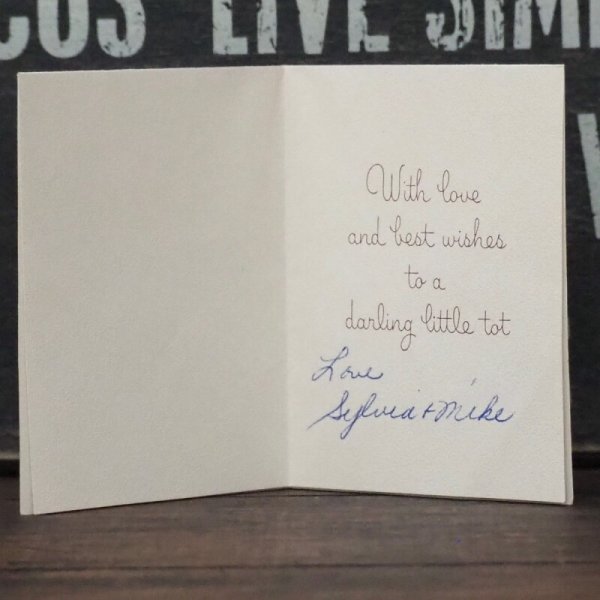 LIVE
With love
and best wishes
to a
darling little tot
Love
Sylvia + Mike